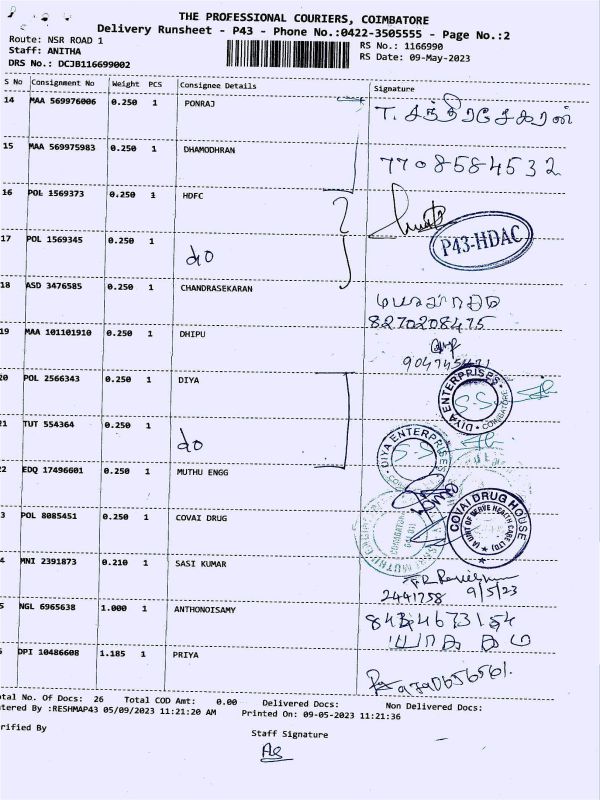 THE PROFESSIONAL COURIERS, COIMBATORE
Delivery Runsheet - P43 - Phone No.:0422-3505555 - Page No.:2
Route: NSR ROAD 1
RS No.: 1166990
Staff: ANITHA
RS Date: 09-May-2023
DRS No.: DCJB116699002
S No Consignment No Weight PCS Consignee Details Signature
14 MAA 569976006 0.250 1 PONRAJ T. சந்திரசேகரன்
15 MAA 569975983 0.250 1 DHAMODHRAN 7708584532
16 POL 1569373 0.250 1 HDFC
P43-HDAC
17 POL 1569345 0.250 1 do
18 ASD 3476585 0.250 1 CHANDRASEKARAN
8270208475
19 MAA 101101910 0.250 1 DHIPU
20 POL 2566343 0.250 1 DIYA
DIYA ENTERPRISES COIMBATORE
21 TUT 554364 0.250 1 do
DIYA ENTERPRISES
22 EDQ 17496601 0.250 1 MUTHU ENGG
3 POL 8085451 0.250 1 COVAI DRUG
COVAI DRUG HOUSE
(A UNIT OF NERVE HEALTH CARE LTD)
4 MNI 2391873 0.210 1 SASI KUMAR
2441758 9/5/23
5 NGL 6965638 1.000 1 ANTHONOISAMY
DPI 10486608 1.185 1 PRIYA
9790656561.
otal No. Of Docs: 26 Total COD Amt: 0.00 Delivered Docs: Non Delivered Docs:
tered By :RESHMAP43 05/09/2023 11:21:20 AM Printed On: 09-05-2023 11:21:36
rified By Staff Signature